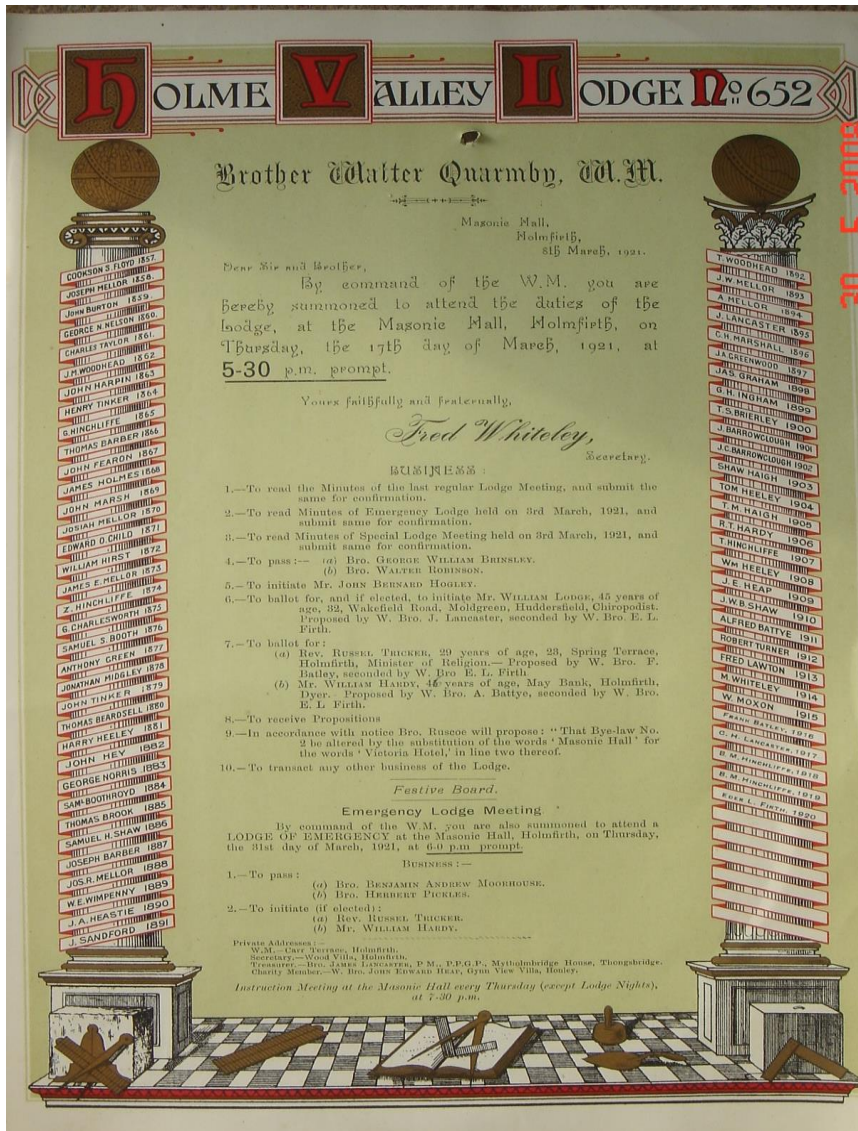 HOLME VALLEY LODGE No 652
Brother Walter Quarmby, W.M.
Masonic Hall,
Holmfirth,
8th March, 1921.
Dear Sir and Brother,
By command of the W.M. you are
hereby summoned to attend the duties of the
Lodge, at the Masonic Hall, Holmfirth, on
Thursday, the 17th day of March, 1921, at
5-30 p.m. prompt.
Yours faithfully and fraternally,
Fred Whiteley,
Secretary.
BUSINESS:
1.—To read the Minutes of the last regular Lodge Meeting, and submit the
same for confirmation.
2.—To read Minutes of Emergency Lodge held on 3rd March, 1921, and
submit same for confirmation.
3.—To read Minutes of Special Lodge Meeting held on 3rd March, 1921, and
submit same for confirmation.
4.—To pass:— (a) Bro. GEORGE WILLIAM BRINSLEY.
(b) Bro. WALTER ROBINSON.
5.—To initiate Mr. JOHN BERNARD HOGLEY.
6.—To ballot for, and if elected, to initiate Mr. WILLIAM LODGE, 45 years of
age, 32, Wakefield Road, Moldgreen, Huddersfield, Chiropodist.
Proposed by W. Bro. J. Lancaster, seconded by W. Bro. E. L.
Firth.
7.—To ballot for:
(a) Rev. RUSSEL TRICKER, 29 years of age, 23, Spring Terrace,
Holmfirth, Minister of Religion.— Proposed by W. Bro. F.
Batley, seconded by W. Bro E. L. Firth.
(b) Mr. WILLIAM HARDY, years of age, May Bank, Holmfirth,
Dyer. Proposed by W. Bro. A. Battye, seconded by W. Bro.
E. L Firth.
8.—To receive Propositions
9.—In accordance with notice Bro. Ruscoe will propose: "That Bye-law No.
2 be altered by the substitution of the words 'Masonic Hall' for
the words 'Victoria Hotel,' in line two thereof.
10.—To transact any other business of the Lodge.
Festive Board.
Emergency Lodge Meeting
By command of the W.M. you are also summoned to attend a
LODGE OF EMERGENCY at the Masonic Hall, Holmfirth, on Thursday,
the 31st day of March, 1921, at 6-0 p.m prompt.
BUSINESS:—
1.—To pass:
(a) Bro. BENJAMIN ANDREW MOORHOUSE.
(b) Bro. HERBERT PICKLES.
2.—To initiate (if elected):
(a) Rev. RUSSEL TRICKER.
(b) Mr. WILLIAM HARDY.
Private Addresses:—
W.M.—Carr Terrace, Holmfirth.
Secretary.—Wood Villa, Holmfirth.
Treasurer.—Bro. JAMES LANCASTER, P M., P.P.G.P., Mytholmbridge House, Thongsbridge.
Charity Member.—W. Bro. JOHN EDWARD HEAP, Gynn View Villa, Honley.
Instruction Meeting at the Masonic Hall every Thursday (except Lodge Nights),
at 7-30 p.m.
COOKSON S. FLOYD 1857.
JOSEPH MELLOR 1858.
JOHN BURTON 1859.
GEORGE N. NELSON 1860.
CHARLES TAYLOR 1861.
J.M. WOODHEAD 1862
JOHN HARPIN 1863
HENRY TINKER 1864
G. HINCHLIFFE 1865
THOMAS BARBER 1866
JOHN FEARON 1867
JAMES HOLMES 1868
JOHN MARSH 1869
JOSIAH MELLOR 1870
EDWARD O. CHILD 1871
WILLIAM HIRST 1872
JAMES E. MELLOR 1873
Z. HINCHLIFFE 1874
G. CHARLESWORTH 1875
SAMUEL S. BOOTH 1876
ANTHONY GREEN 1877
JONATHAN MIDGLEY 1878
JOHN TINKER 1879
THOMAS BEARDSELL 1880
HARRY HEELEY 1881
JOHN HEY 1882
GEORGE NORRIS 1883
SAML BOOTHROYD 1884
THOMAS BROOK 1885
SAMUEL H. SHAW 1886
JOSEPH BARBER 1887
JOS. R. MELLOR 1888
W.E. WIMPENNY 1889
J.A. HEASTIE 1890
J. SANDFORD 1891
T. WOODHEAD 1892
J.W. MELLOR 1893
A MELLOR 1894
J. LANCASTER 1895
C.H. MARSHALL 1896
J.A GREENWOOD 1897
JAS GRAHAM 1898
G.H. INGHAM 1899
T.S. BRIERLEY 1900
J. BARROWCLOUGH 1901
J.C. BARROWCLOUGH 1902
SHAW HAIGH 1903
TOM HEELEY 1904
T.M. HAIGH 1905
R.T. HARDY 1906
T. HINCHLIFFE 1907
WM HEELEY 1908
J.E. HEAP 1909
J.W.B. SHAW 1910
ALFRED BATTYE 1911
ROBERT TURNER 1912
FRED LAWTON 1913
M. WHITELEY 1914
W. MOXON 1915
FRANK BATLEY, 1916
C. H. LANCASTER, 1917
B. M. HINCHLIFFE, 1918
B. M. HINCHLIFFE, 1919
EDER L. FIRTH, 1920
30 5 2009